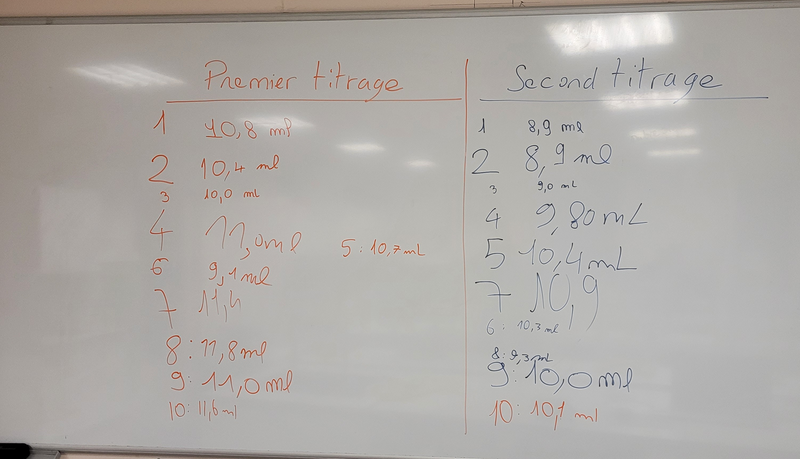 Premier titrage
1 10,8 ml
2 10,4 ml
3 10,0 ml
4 11,0ml
5 : 10,7mL
6 9,1ml
7 11,4
8 : 11,8ml
9 : 11,0ml
10 : 11,6ml
Second titrage
1 8,9 ml
2 8,9 ml
3 9,0 mL
4 9,80mL
5 10,4mL
7 10,9
6 : 10,3ml
8 : 9,3mL
9 : 10,0ml
10 : 10,1 ml